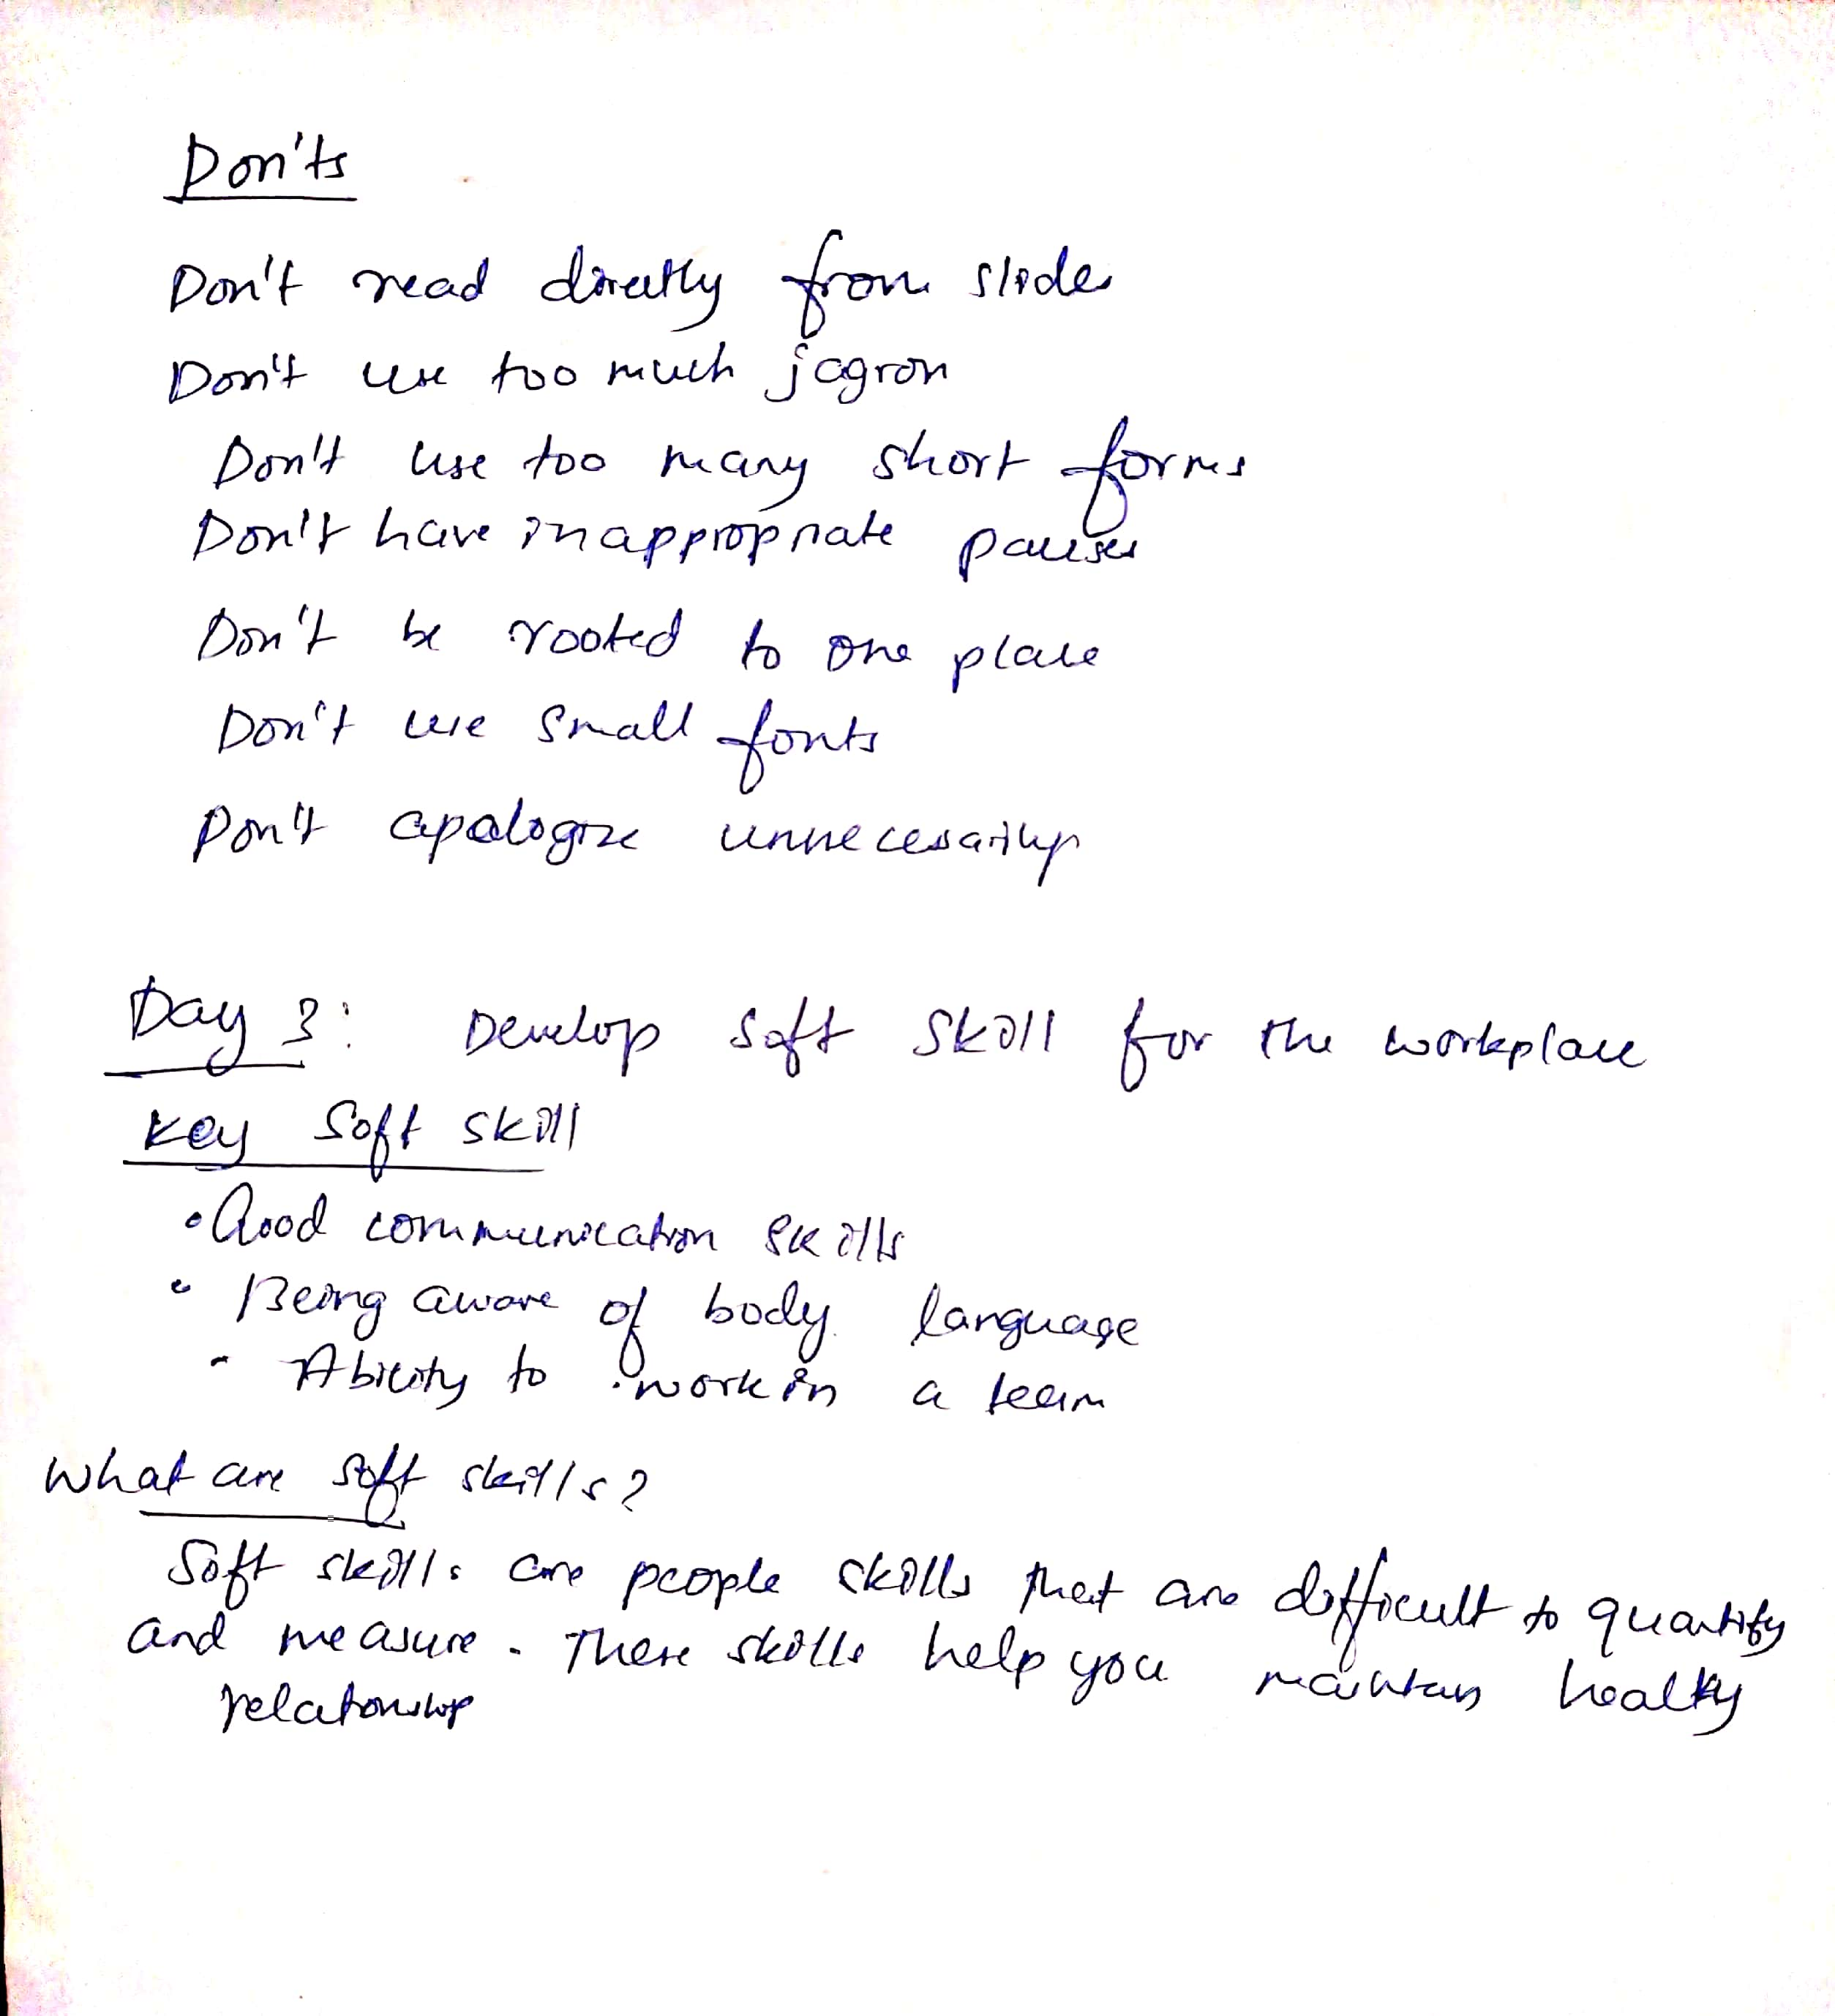 Don'ts
Don't read directly from slides
Don't use too much jagron
Don't use too many short forms
Don't have inappropriate pauses
Don't be rooted to one place
Don't use small fonts
Don't apologize unnecessarily
Day 3: Develop soft skill for the workplace
Key soft skill
• Good communication skills
• Being aware of body language
- Ability to work in a team
What are soft skills?
Soft skills are people skills that are difficult to quantify
and measure. These skills help you maintain healthy
relationship